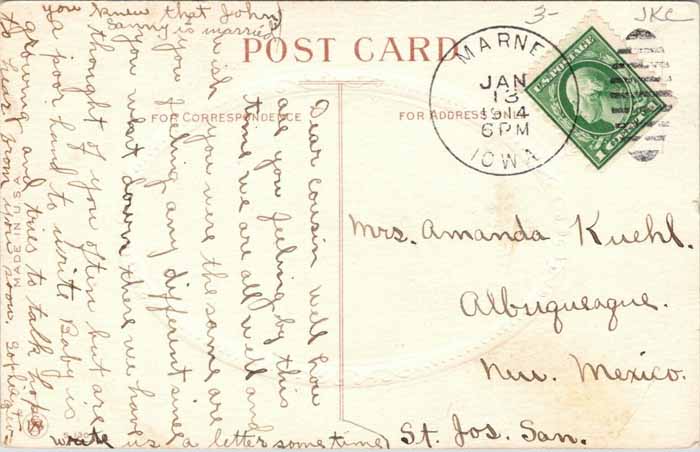 POST CARD
FOR CORRESPONDENCE
FOR ADDRESS ONLY
MARNE
JAN
13
1914
6 PM
IOWA
U.S. POSTAGE
3-
JKC
Dear cousin well how
are you feeling by this
time we are all well and
wish you were the same are
you feeling any different since
you went down there we have
thought of you often but are
a poor hand to write Baby is
growing and tries to talk hope
to hear from you soon. Sophie
write us a letter some time
you knew that John
is married
Mrs. Amanda Kuehl.
Albuqueaque.
New Mexico.
St. Jos. San.
MADE IN U.S.A.